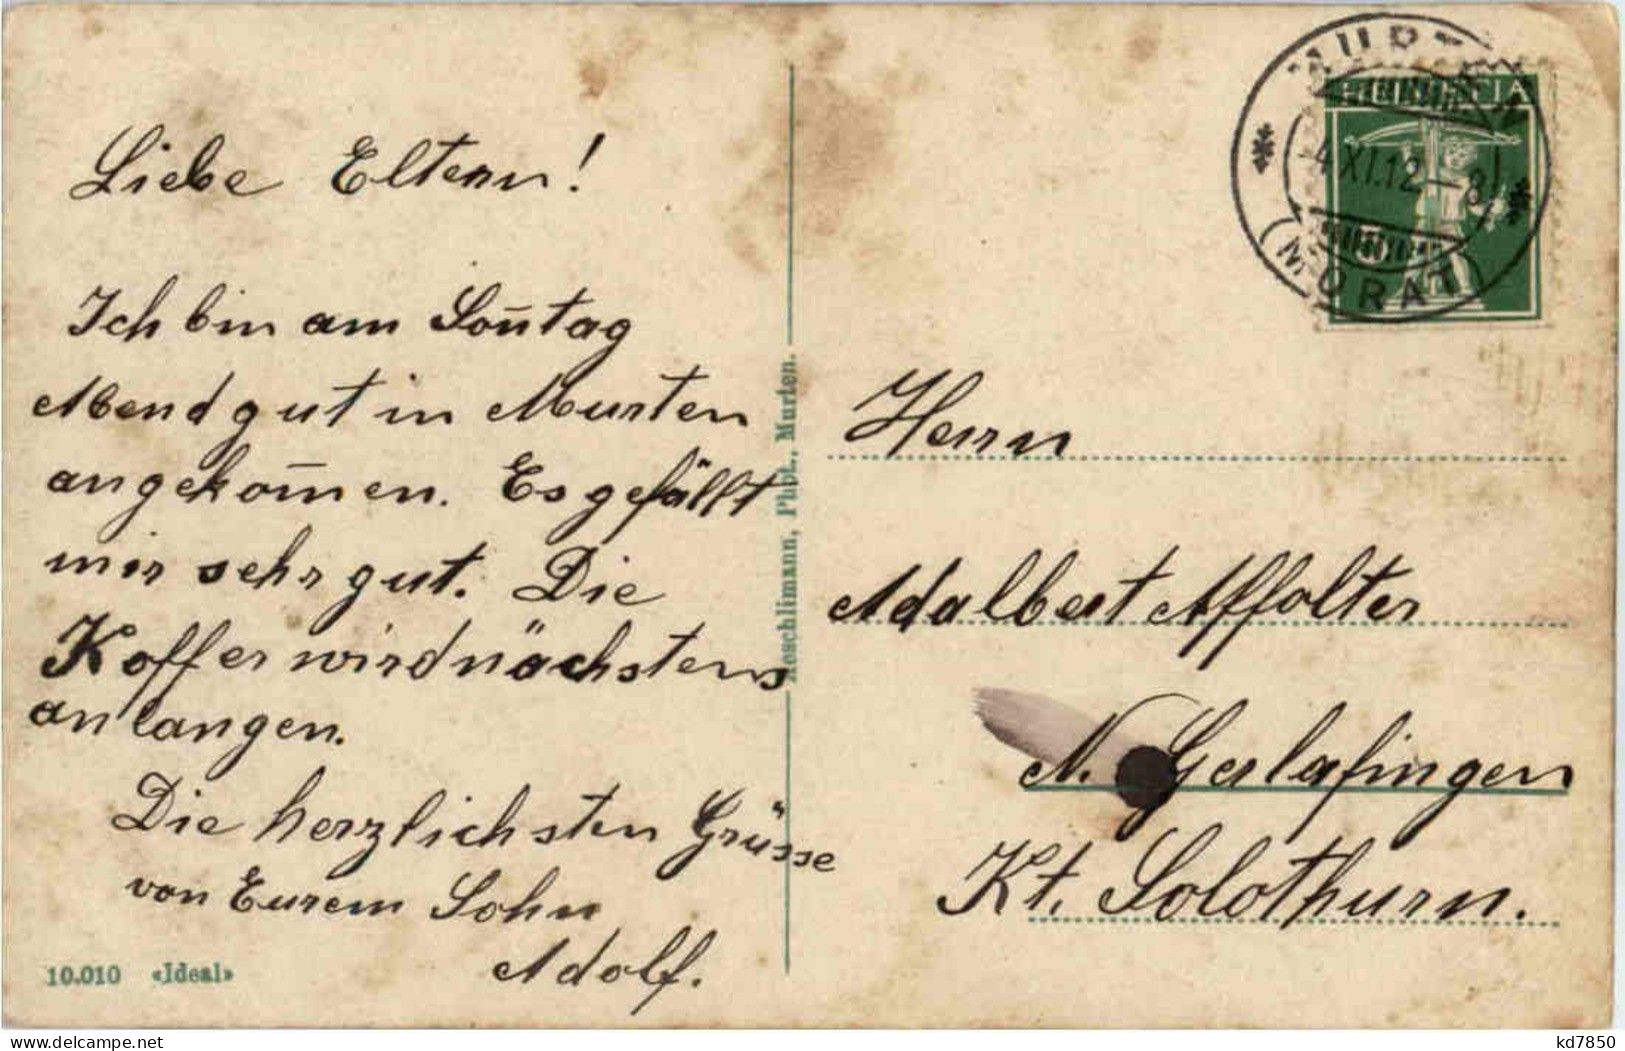 Liebe Eltern!
Ich bin am Son̄tag
Abend gut in Murten
angekom̄en. Es gefällt
mir sehr gut. Die
Koffer wird nächstens
anlangen.
Die herzlichsten Grüsse
von Eurem Sohn
Adolf.
10.010 «Ideal»
Aeschlimann, Phot., Murten.
MURTEN
HELVETIA
-4.XI.12-8
(MORAT)
Herrn
Adalbert Affolter
N. Gerlafingen
Kt. Solothurn.
kd7850